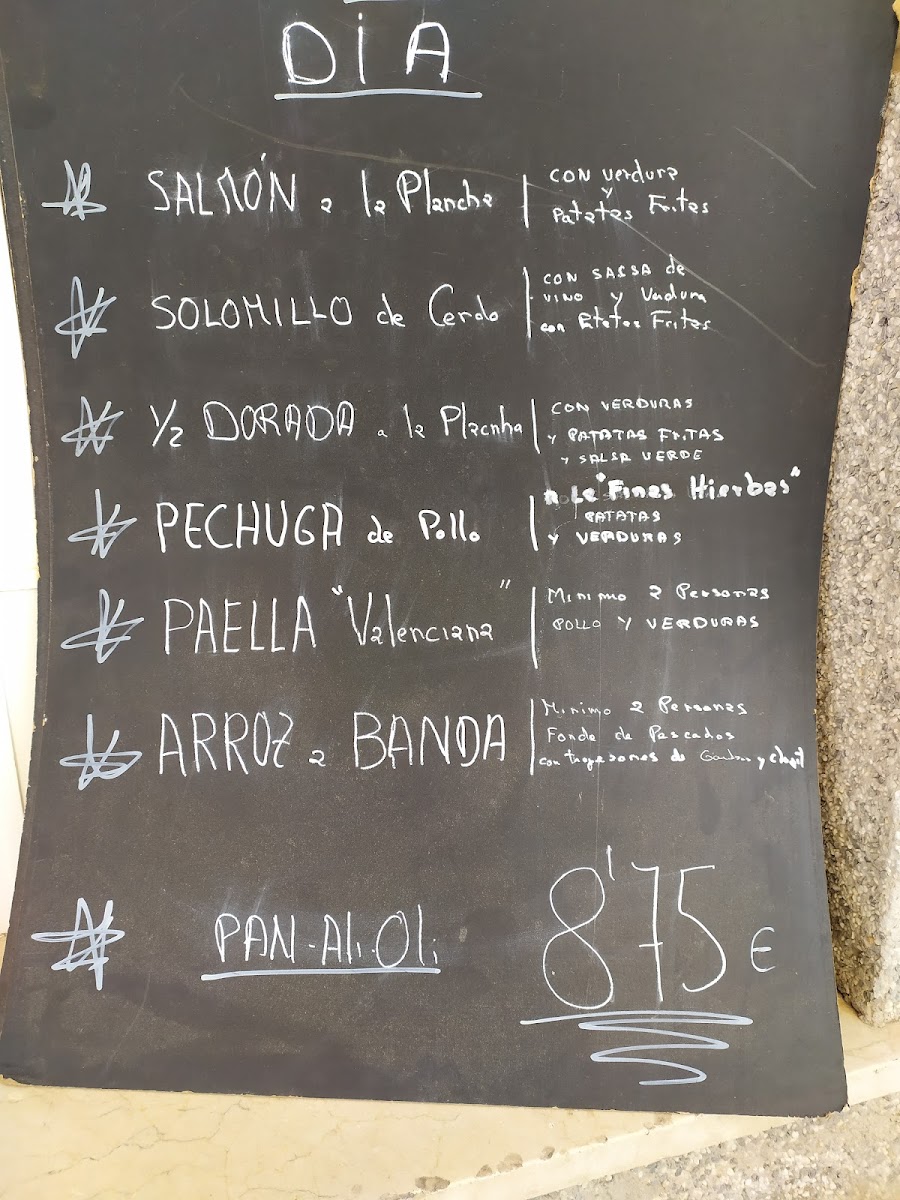 DÍA
SALMÓN a la Plancha
con verdura
y
Patatas Fritas
SOLOMILLO de Cerdo
CON SALSA de
VINO y Verdura
con Patatas Fritas
1/2 DORADA a la Placnha
CON VERDURAS
y PATATAS FRITAS
y SALSA VERDE
PECHUGA de Pollo
A La "Finas Hierbas"
PATATAS
Y VERDURAS
PAELLA "Valenciana"
Minimo 2 Personas
POLLO Y VERDURAS
ARROZ a BANDA
Minimo 2 Personas
Fondo de Pescados
con de y
PAN-Ali-Oli
8'75 €